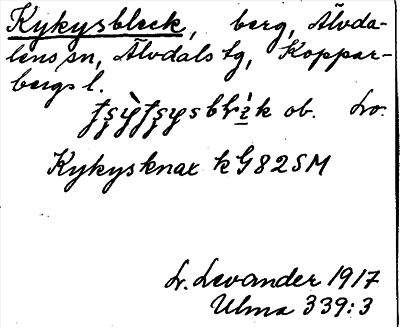 Kykysbleck, berg, Älvda-
lens sn, Älvdals tg, Koppar-
bergs l.
ob. Lvo.
Kykysknar kG82SM
L. Levander 1917
Ulma 339:3